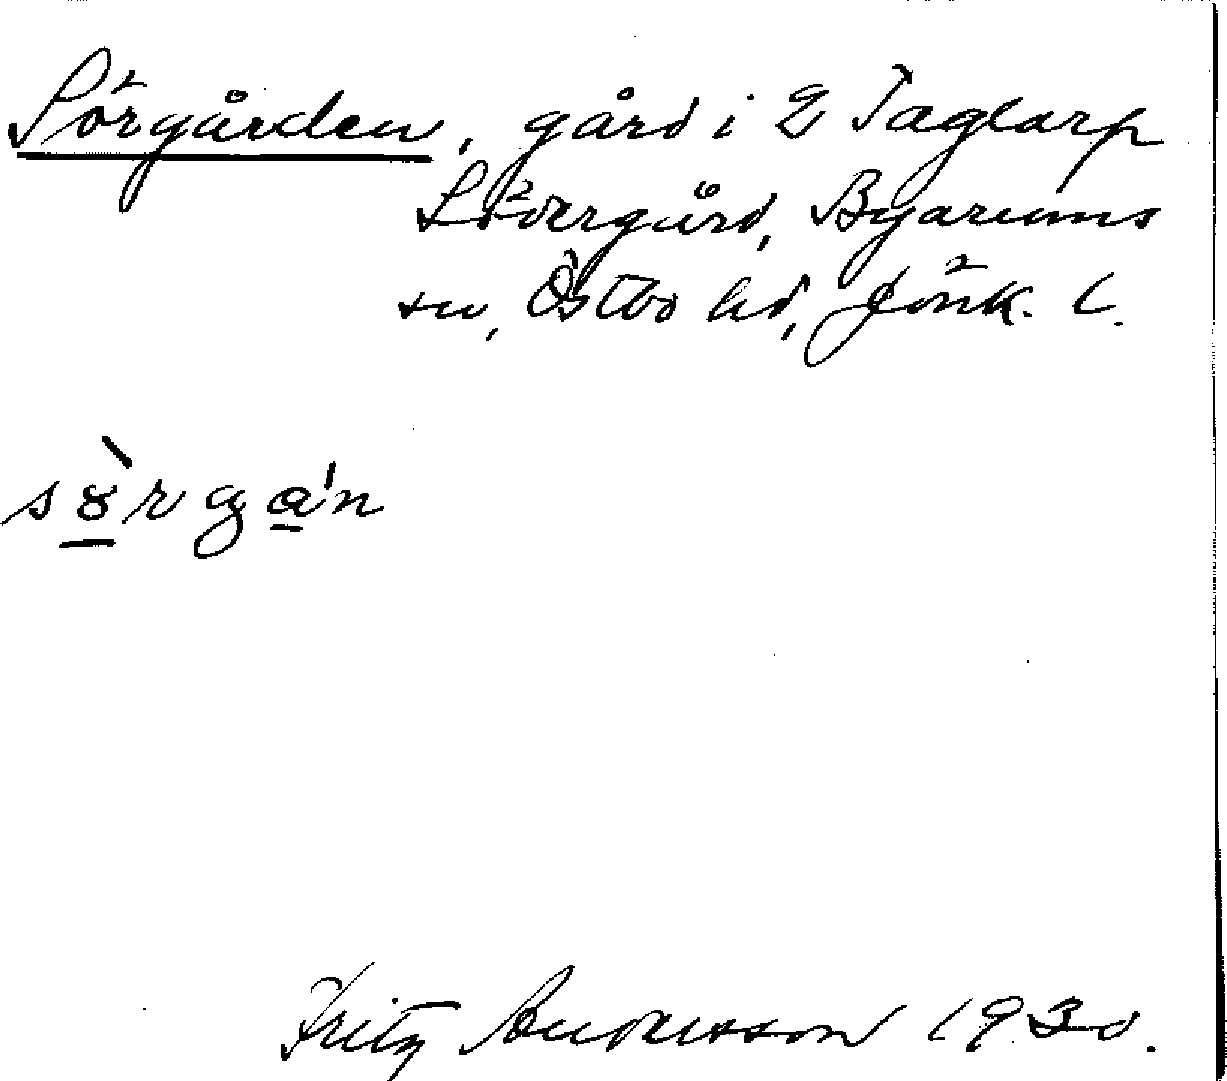 Sörgården, gård i 2 Taglarp
Södergård, Byarums
sn, Östbo hd, Jönk. l.
sörgɑ'n
Fritz Andersson 1930.